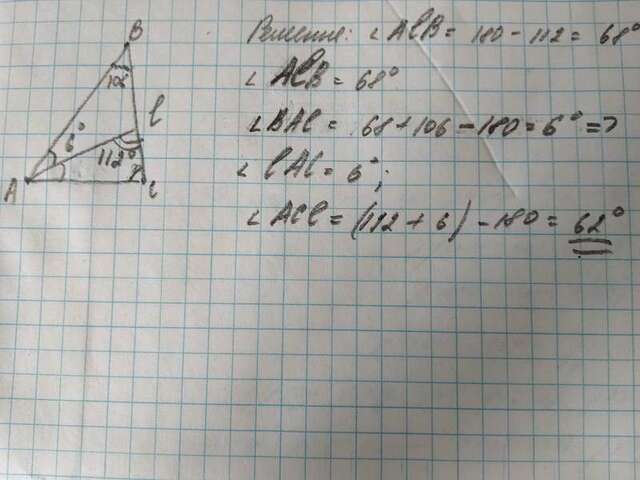 B
l
6°
112°
A
Решение: ∠AlB = 180 - 112 = 68°
∠ AlB = 68°
∠BAl = 68 + 106 - 180 = 6° =>
∠ lAC = 6°;
∠ ACl = (112 + 6) - 180 = 62°